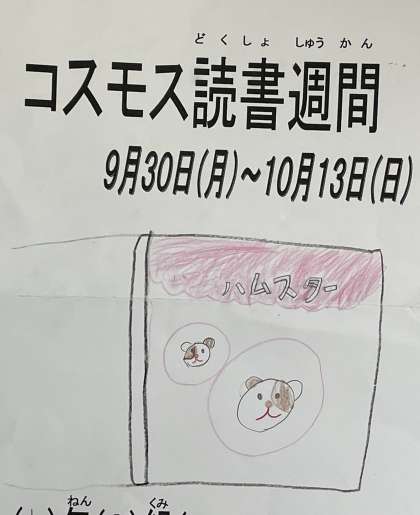 どくしょ しゅうかん
コスモス読書週間
9月30日(月)~10月13日(日)
ハムスター
ねん くみ